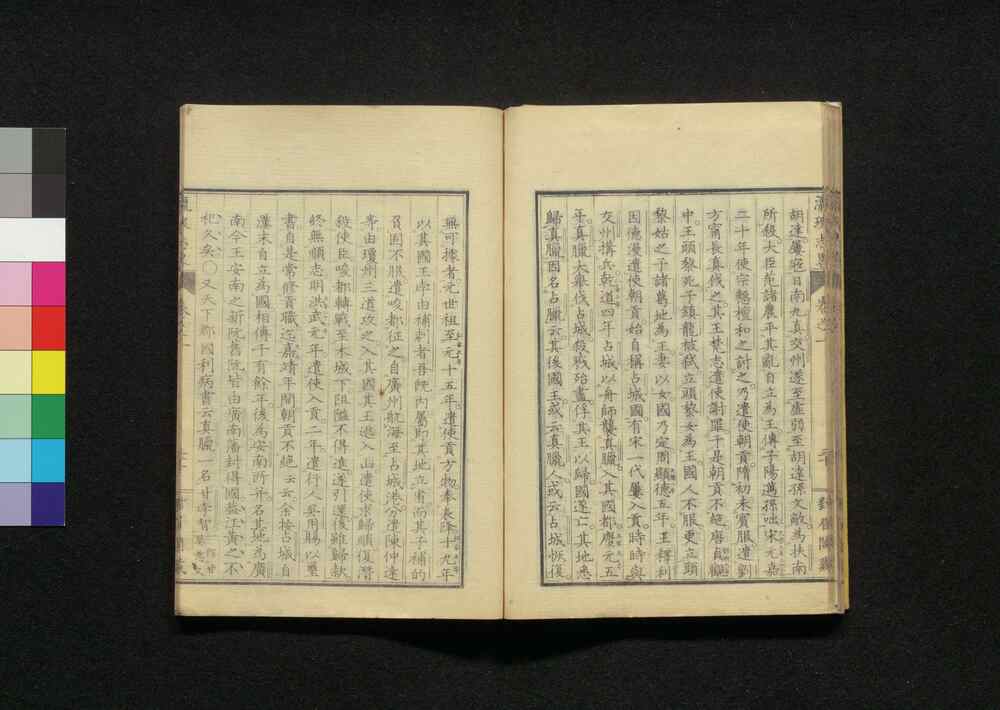 胡達屢寇日南九真交州遂至虛弱至胡達孫文敵為扶南
所殺大臣范諸農平其亂自立為王傳子陽邁孫咄宋元嘉
二十年使宗慤檀和之討之乃遣使朝貢隋初未賓服遣劉
方甯長真伐之其王梵志遣使謝罪于是朝貢不絕唐貞觀
中王頭黎死子鎮龍被弒立頭黎女為王國人不服更立頭
黎姑之子諸葛地為王妻以女國乃定周顯德五年王釋利
因德漫遣使朝貢始自稱占城國有宋一代屢入貢時時與
交州搆兵乾道四年占城以舟師襲真臘入其國都慶元五
年真臘大舉伐占城殺戮殆盡俘其王以歸國遂亡其地悉
歸真臘因名占臘云其後國王或云真臘人或云占城恢復
無可據者元世祖至元十五年遣使貢方物奉表降十九年
以其國王孛由補剌者吾旣內屬即其地立省而其子補的
負固不服遣唆都征之自廣州航海至占城港分遣陳仲達
等由瓊州三道攻之入其國其王逃入山遣使求歸順復潛
殺使臣唆都轉戰至木城下阻隘不得進遂引還後雖歸款
終無順志明洪武元年遣使入貢二年遣行人吳用賜以璽
書自是常修貢職迄嘉靖年間朝貢不絕云云余按占城自
漢末自立為國相傳千有餘年後為安南所并名其地為廣
南今王安南之新阮舊阮皆由廣南藩封得國蓋江黃之不
祀久矣〇又天下郡國利病書云真臘一名甘孛智